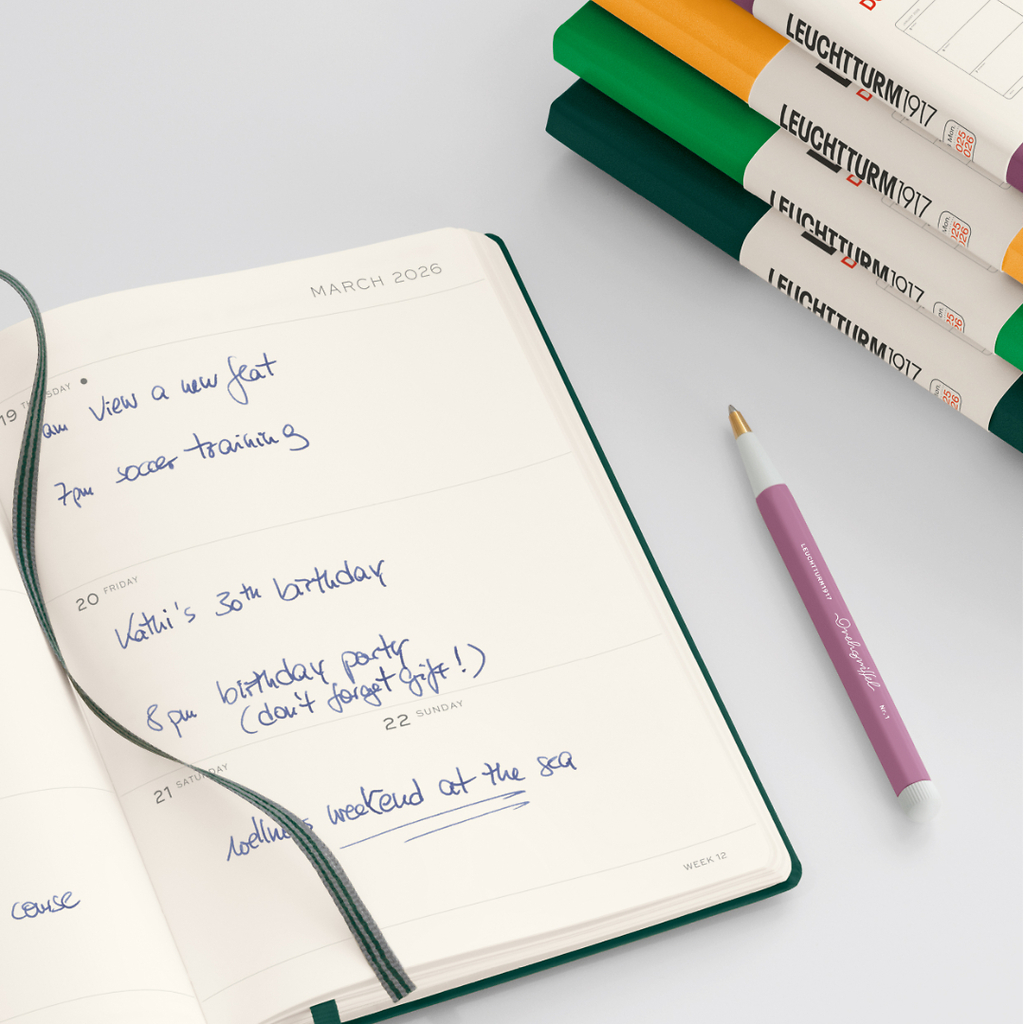 LEUCHTTURM1917
LEUCHTTURM1917
LEUCHTTURM1917
LEUCHTTURM1917
MARCH 2026
19 THURSDAY
am view a new flat
7pm soccer training
20 FRIDAY
Kathi's 30th birthday
8pm birthday party
(don't forget gift!)
22 SUNDAY
21 SATURDAY
wellness weekend at the sea
WEEK 12
course
LEUCHTTURM1917
Drehgriffel
Nr. 1